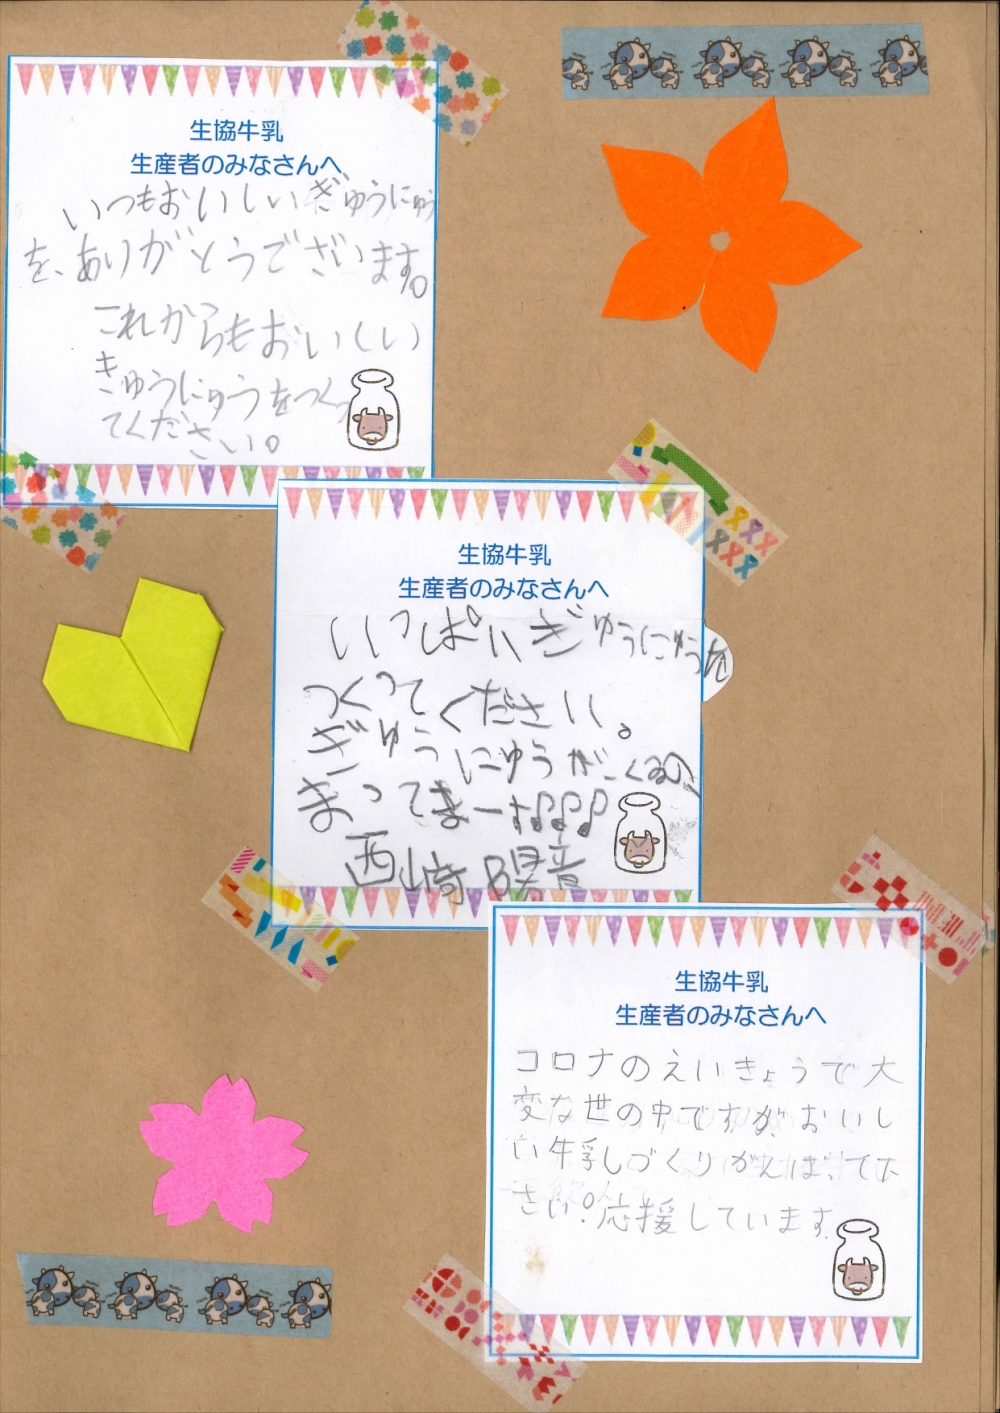 生協牛乳
生産者のみなさんへ
いつもおいしいぎゅうにゅう
を、ありがとうございます。
これからもおいしい
ぎゅうにゅうをつくっ
てください。
生協牛乳
生産者のみなさんへ
いっぱいぎゅうにゅうを
つくってください。
ぎゅうにゅうがくるの
まってまーす♪♪♪
西崎陽音
生協牛乳
生産者のみなさんへ
コロナのえいきょうで大
変な世の中ですが、おいし
い牛乳しづくりがんばって下
さい!応援しています。